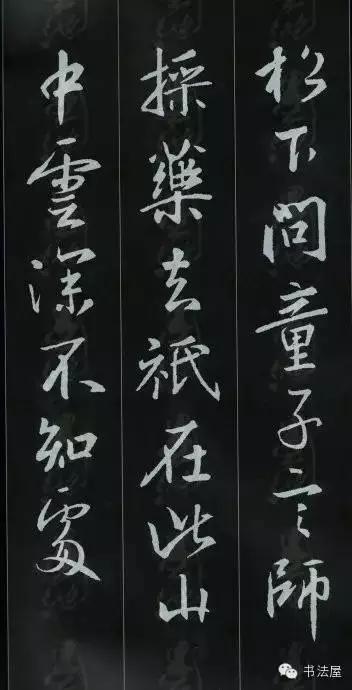 松下問童子言師
採藥去祇在此山
中雲深不知處
书法屋